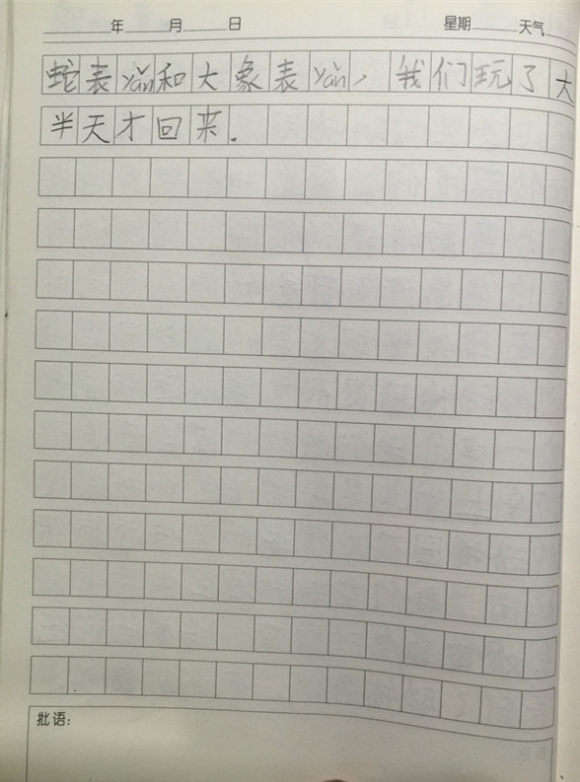 ____年____月____日 星期____天气____
蛇表yǎn和大象表yǎn，我们玩了大
半天才回来.
批语: